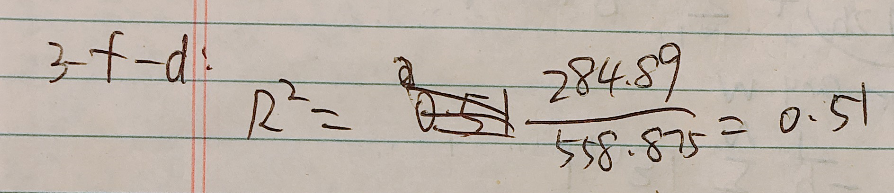 3-f-d:
R² = 284.89 / 558.875 = 0.51